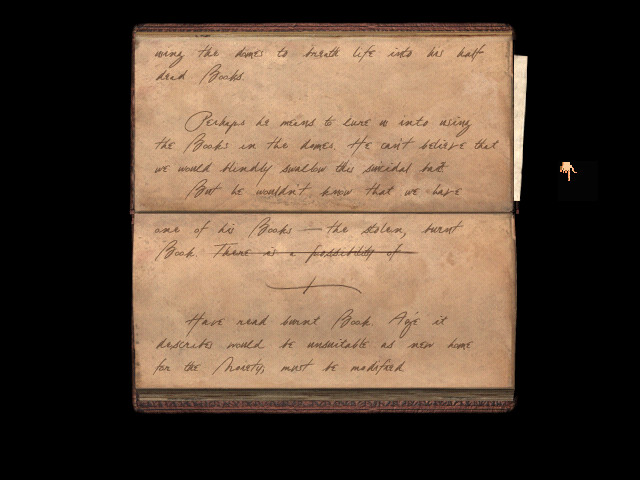 using the domes to breath life into his half
dead Books.
Perhaps he means to lure us into using
the Books in the domes. He can't believe that
we would blindly swallow this suicidal bait.
But he wouldn't know that we have
one of his Books — the stolen, burnt
Book. There is a possibility of
Have read burnt Book. Age it
describes would be unsuitable as new home
for the Moiety, must be modified